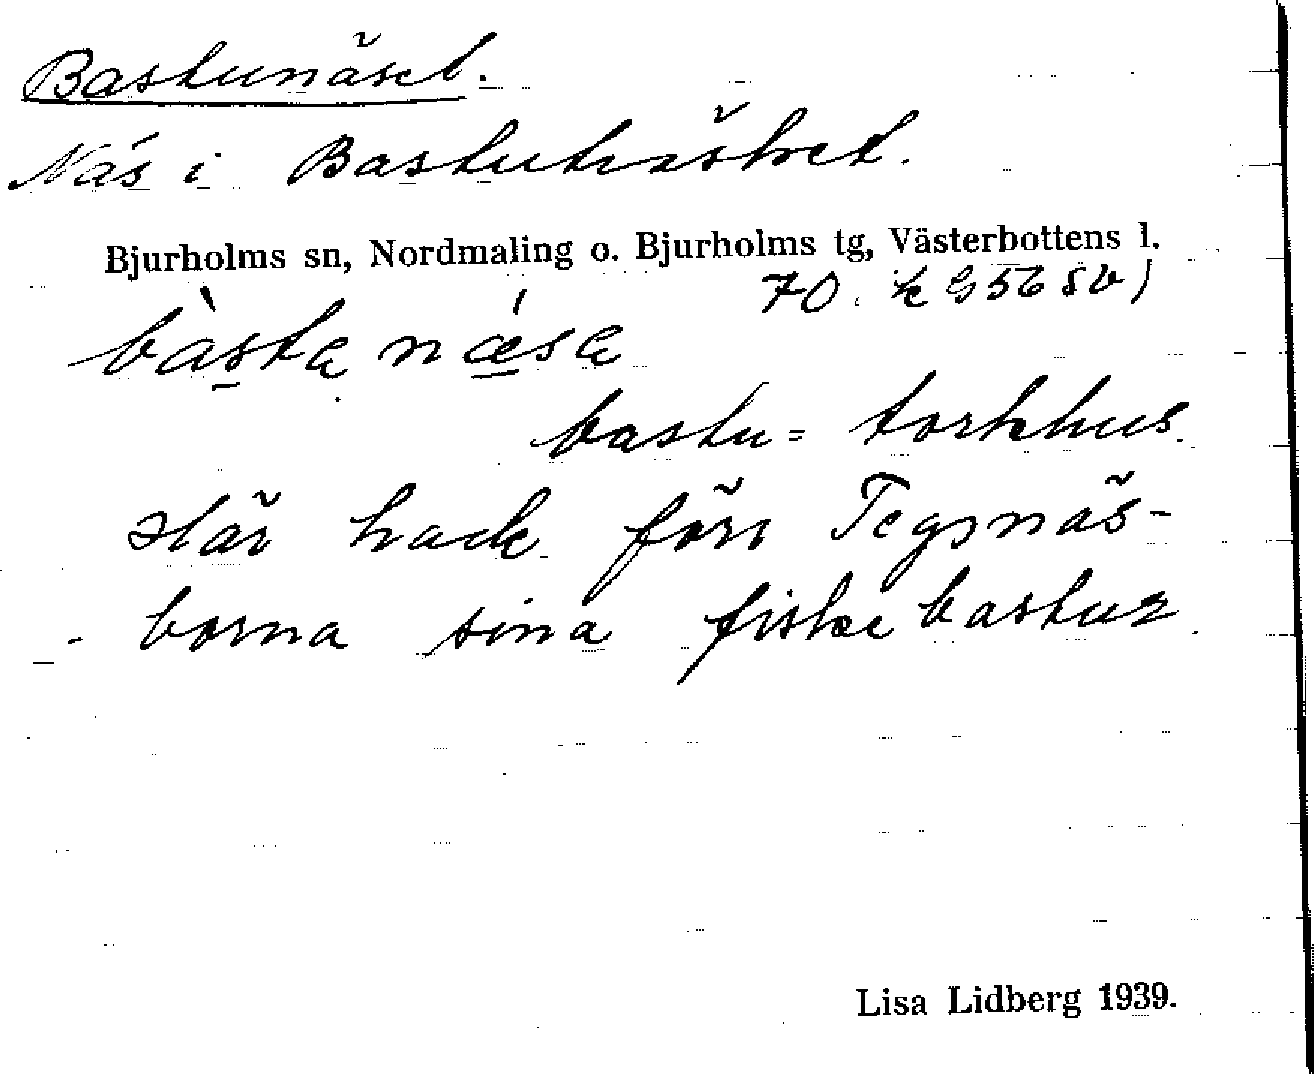 Bastunäset.
Näs i Bastuträsket.
Bjurholms sn, Nordmaling o. Bjurholms tg, Västerbottens l.
70. k G56 SV)
bàsta næ´sa
bastu = torkhus.
Här hade förr Tegsnäs-
- borna sina fiskebastur.
Lisa Lidberg 1939.